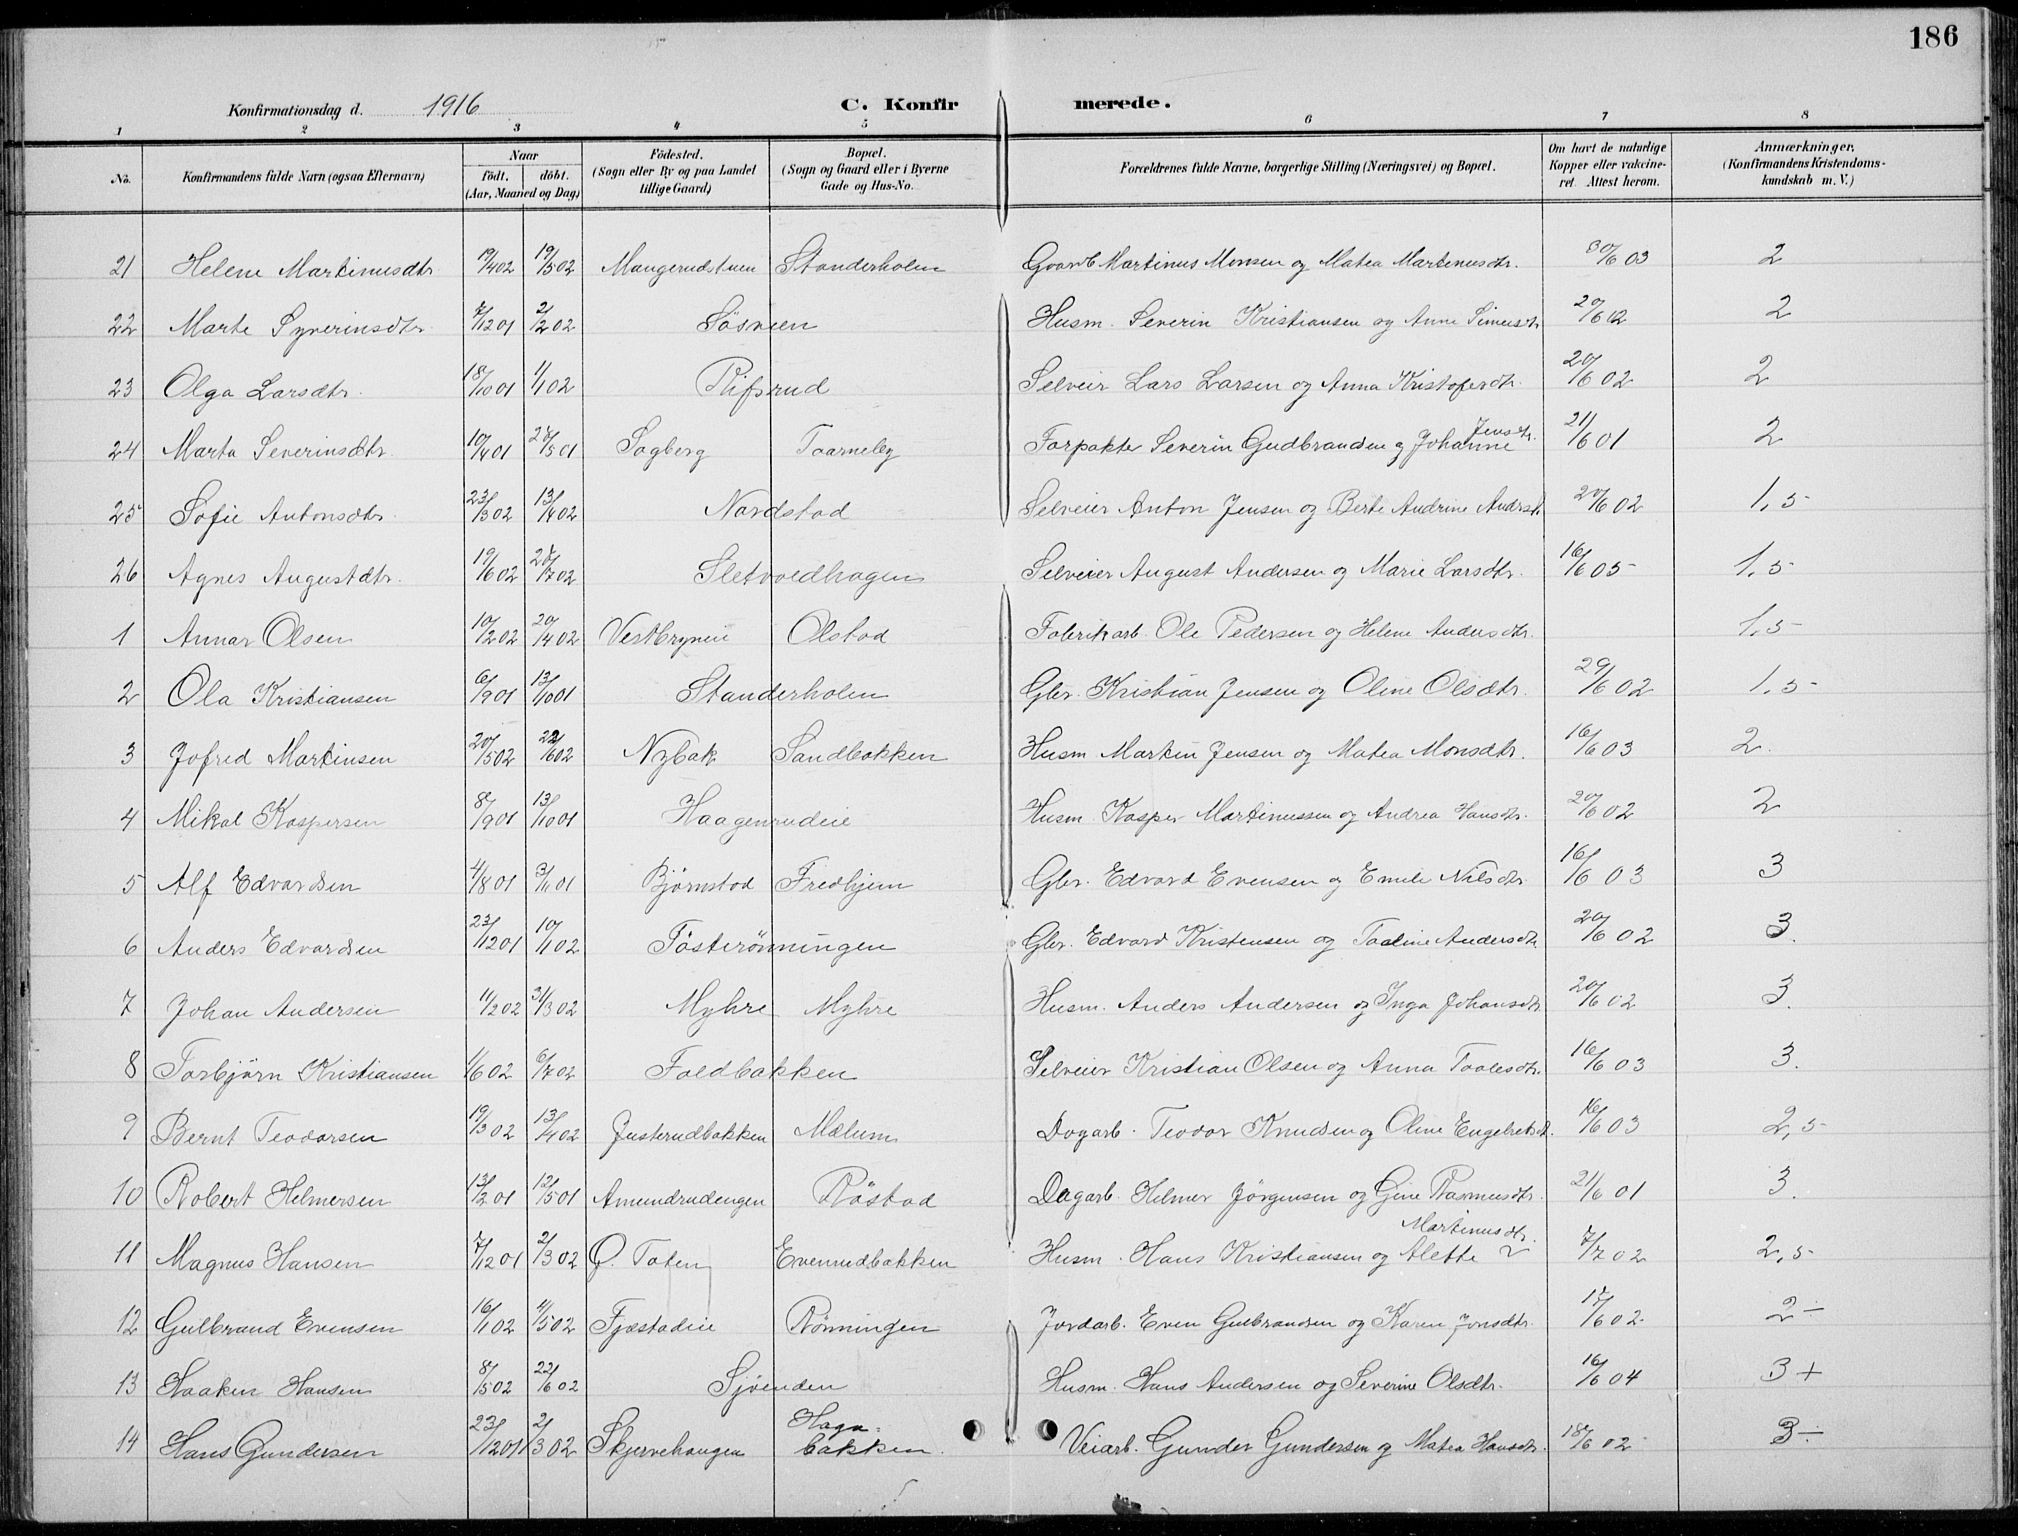 186
Konfirmationsdag d. 1916 C. Konfirmerede.
1 2 3 4 5 6 7 8
No. Konfirmandens fulde Navn (ogsaa Efternavn) Naar født. døbt. (Aar, Maaned og Dag) Fødested. (Sogn eller By og paa Landet tillige Gaard) Bopæl. (Sogn og Gaard eller i Byerne Gade og Hus-No. Forældrenes fulde Navne, borgerlige Stilling (Næringsvei) og Bopæl. Om havt de naturlige Kopper eller vakcineret. Attest herom. Anmærkninger. (Konfirmandens Kristendomskundskab m. V.)
21 Helene Martinusdtr. 19/4 02 19/5 02 Mangerudstuen Standerholen Gaarb Martinus Monsen og Matea Martinusdtr. 30/6 03 2
22 Marte Syverinsdtr. 7/12 01 2/2 02 Søsveen Husm. Severin Kristiansen og Anne Simensdtr 20/6 02 2
23 Olga Larsdtr. 18/10 01 1/1 02 Rifsrud Selveier Lars Larsen og Anna Kristofersdtr. 20/6 02 2
24 Marta Severinsdtr. 10/4 01 28/5 01 Sagberg Taarneby Forpakter Severin Gudbrandsen og Johanne Jensdtr. 21/6 01 2
25 Sofie Antonsdtr. 23/3 02 13/4 02 Nordstad Selveier Anton Jensen og Berte Andrine Andersdt. 20/6 02 1,5
26 Agnes Augustdtr. 19/6 02 28/7 02 Sletvoldhagen Selveier August Andersen og Marie Larsdtr. 16/6 05 1,5
1 Annar Olsen 10/2 02 20/4 02 Vestbryneie Olstad Fabrikarb. Ole Pedersen og Helene Andersdtr. 1,5
2 Ola Kristiansen 6/9 01 13/10 01 Standerholen Gbr. Kristian Jensen og Oline Olsdtr. 29/6 02 1.5
3 Jofred Martinsen 20/5 02 22/6 02 Nybak Sandbakken Husm Martin Jensen og Matea Monsdtr. 16/6 03 2.
4 Mikal Kaspersen 8/9 01 13/10 01 Haagenrudeie Husm. Kasper Martinussen og Andrea Hansdtr. 20/6 02 2
5 Alf Edvardsen 4/8 01 3/11 01 Bjørnstad Fredhjem Gbr. Edvard Evensen og Emile Nilsdtr. 16/6 03 3
6 Anders Edvardsen 23/12 01 10/1 02 Tøsterønningen Gbr. Edvard Kristensen og Taaline Andersdtr 20/6 02 3.
7 Johan Andersen 11/2 02 31/3 02 Myhre Myhre Husm. Anders Andersen og Inga Johansdtr. 20/6 02 3.
8 Torbjørn Kristiansen 1/6 02 6/7 02 Foldbakken Selveier Kristian Olsen og Anna Taalesdtr. 16/6 03 3.
9 Bernt Teodorsen 19/3 02 13/4 02 Justerudbakken Mælum Dagarb. Teodor Knudsen og Oline Engebretsdt. 16/6 03 2,5
10 Robert Helmersen 13/2 01 12/5 01 Amundrudengen Røstad Dagarb. Helmer Jørgensen og Gine Rasmusdtr. 21/6 01 3.
11 Magnus Hansen 7/12 01 2/3 02 Ø. Toten Evenrudbakken Husm. Hans Kristiansen og Alette Martinusdtr. 7/7 02 2,5
12 Gulbrand Evensen 16/1 02 4/5 02 Fjæstadeie Rønningen Jordarb. Even Gulbrandsen og Karen Jonsdtr. 17/6 02 2-
13 Haaken Hansen 8/5 02 22/6 02 Sjøenden Husm. Hans Andersen og Severine Olsdtr. 16/6 04 3+
14 Hans Gundersen 23/12 01 2/3 02 Skjervehaugen Hagabakken Veiarb. Gunder Gundersen og Matea Hansdtr. 18/6 02 3÷